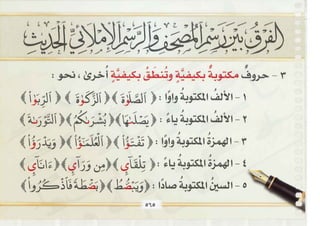 الفرق بين رسم المصحف والرسم الإملائي الحديث
٣ - حروفٌ مكتوبةٌ بكيفيَّةٍ وتُنطَقُ بكيفيَّةٍ أخرىٰ ، نحو :
١ - الألفُ المكتوبةُ واوًا : ﴿ٱلصَّلَوٰةَ﴾ ﴿ٱلزَّكَوٰةَ﴾ ﴿ٱلرِّبَوٰاْ﴾
٢ - الألفُ المكتوبةُ ياءً : ﴿يَصْلَىٰهَا﴾ ﴿بُشْرَىٰكُمُ﴾ ﴿ٱلتَّوْرَىٰةَ﴾
٣ - الهمزةُ المكتوبةُ واوًا : ﴿تَفْتَؤُاْ﴾ ﴿ٱلْعُلَمَٰٓؤُاْ﴾ ﴿وَيَدْرَؤُاْ﴾
٤ - الهمزةُ المكتوبةُ ياءً : ﴿تِلْقَآيِٕ﴾ ﴿مِن وَرَآيِٕ﴾ ﴿ءَانَآيِٕ﴾
٥ - السينُ المكتوبةُ صادًا : ﴿وَيَبْصُۜطُ﴾ ﴿بَصْۜطَةً فَٱذْكُرُوٓاْ﴾
٥٦٥